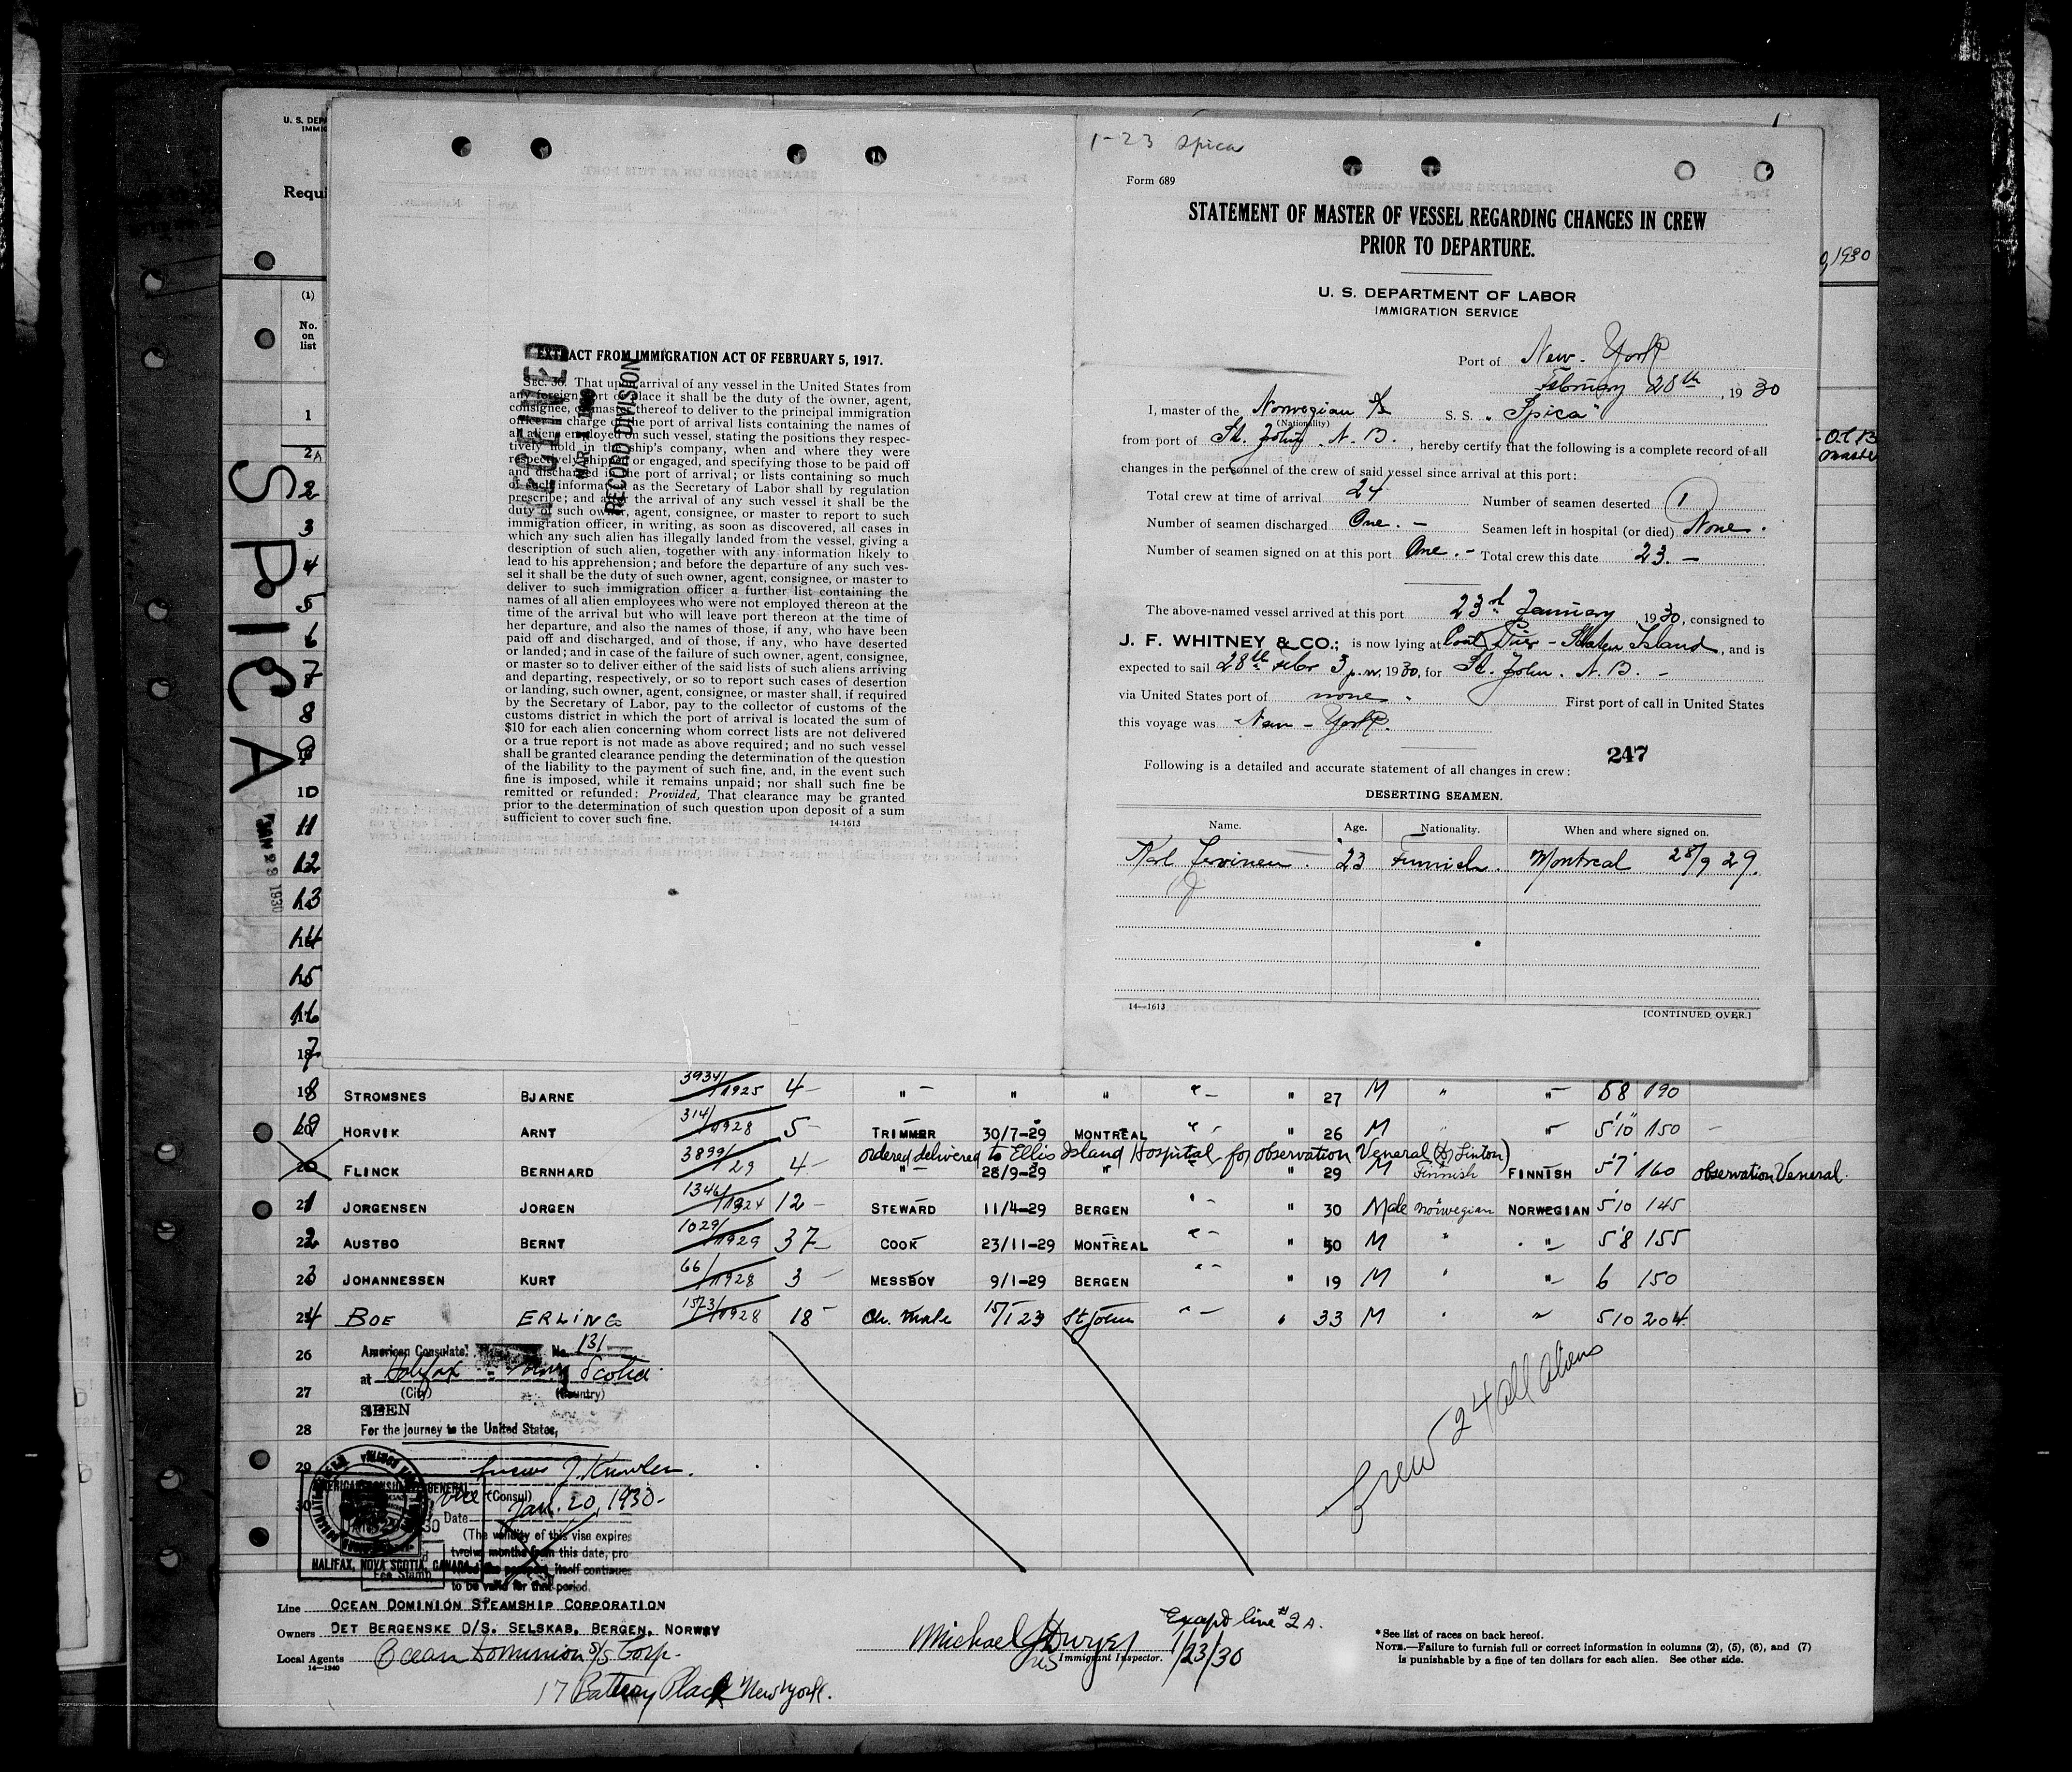 U. S. DEP
IMMIG
Requi
(1)
No.
on
list
1
2A
2
3
4
5
6
7
8
9
10
11
12
13
14
15
16
17
SPICA
JAN 23 1930
, 1930
EXTRACT FROM IMMIGRATION ACT OF FEBRUARY 5, 1917.
RECORD DIVISION
SEC. 36. That upon arrival of any vessel in the United States from
any foreign port or place it shall be the duty of the owner, agent,
consignee, or master thereof to deliver to the principal immigration
officer in charge of the port of arrival lists containing the names of
all aliens employed on such vessel, stating the positions they respec-
tively hold in the ship's company, when and where they were
respectively shipped or engaged, and specifying those to be paid off
and discharged in the port of arrival; or lists containing so much
of such information as the Secretary of Labor shall by regulation
prescribe; and after the arrival of any such vessel it shall be the
duty of such owner, agent, consignee, or master to report to such
immigration officer, in writing, as soon as discovered, all cases in
which any such alien has illegally landed from the vessel, giving a
description of such alien, together with any information likely to
lead to his apprehension; and before the departure of any such ves-
sel it shall be the duty of such owner, agent, consignee, or master to
deliver to such immigration officer a further list containing the
names of all alien employees who were not employed thereon at the
time of the arrival but who will leave port thereon at the time of
her departure, and also the names of those, if any, who have been
paid off and discharged, and of those, if any, who have deserted
or landed; and in case of the failure of such owner, agent, consignee,
or master so to deliver either of the said lists of such aliens arriving
and departing, respectively, or so to report such cases of desertion
or landing, such owner, agent, consignee, or master shall, if required
by the Secretary of Labor, pay to the collector of customs of the
customs district in which the port of arrival is located the sum of
$10 for each alien concerning whom correct lists are not delivered
or a true report is not made as above required; and no such vessel
shall be granted clearance pending the determination of the question
of the liability to the payment of such fine, and, in the event such
fine is imposed, while it remains unpaid; nor shall such fine be
remitted or refunded: Provided, That clearance may be granted
prior to the determination of such question upon deposit of a sum
sufficient to cover such fine. 14-1613
1-23 Spica
Form 689
STATEMENT OF MASTER OF VESSEL REGARDING CHANGES IN CREW
PRIOR TO DEPARTURE.
U. S. DEPARTMENT OF LABOR
IMMIGRATION SERVICE
Port of New-York
February 28th, 1930
I, master of the Norwegian S/S S. S. "Spica"
(Nationality)
from port of St. John, N. B., hereby certify that the following is a complete record of all
changes in the personnel of the crew of said vessel since arrival at this port:
Total crew at time of arrival 24 Number of seamen deserted 1
Number of seamen discharged One. - Seamen left in hospital (or died) None.
Number of seamen signed on at this port One. - Total crew this date 23. -
The above-named vessel arrived at this port 23rd January, 1930, consigned to
J. F. WHITNEY & CO.; is now lying at Coal Pier - Staten Island, and is
expected to sail 28th febr 3 p.m. 1930, for St. John. N. B. -
via United States port of none. First port of call in United States
this voyage was New-York.
247
Following is a detailed and accurate statement of all changes in crew:
DESERTING SEAMEN.
Name. Age. Nationality. When and where signed on.
Jervinen. 23 Finnish. Montreal 28/9 29.
14-1613 [CONTINUED OVER.]
18 STROMSNES BJARNE 3934/1925 4- " " " " " 27 M " " 58 190
19 HORVIK ARNT 314/1928 5- TRIMMER 30/7-29 MONTREAL " " 26 M " " 5'10" 150 -
ordered delivered to Ellis Island Hospital for observation Veneral (Dr Linton)
20 FLINCK BERNHARD 3899/29 4- " 28/9-29 " " " 29 M Finnish FINNISH 5'7" 160 observation Veneral.
21 JORGENSEN JORGEN 1346/1924 12- STEWARD 11/4-29 BERGEN " " 30 Male Norwegian NORWEGIAN 5'10 145
22 AUSTBO BERNT 1029/1929 37- COOK 23/11-29 MONTREAL " " 50 M " " 5'8 155
23 JOHANNESSEN KURT 66/1928 3- MESSBOY 9/1-29 BERGEN " " 19 M " " 6 150
24 BOE ERLING 1573/1928 18- Ch. Mate 15/1 29 St John " " 33 M " " 510 204
26
27
28
29
30
American Consulate No. 131
at Halifax - Nova Scotia
(City) (Country)
SEEN
For the journey to the United States,
Vice (Consul)
Date Jan. 20, 1930-
(The validity of this visa expires
twelve months from this date, pro-
vided the passport itself continues
to be valid for that period.
AMERICAN CONSULATE GENERAL
HALIFAX, NOVA SCOTIA, CANADA
Fee Stamp
Crew 24 all aliens
Line OCEAN DOMINION STEAMSHIP CORPORATION
Owners DET BERGENSKE D/S. SELSKAB, BERGEN, NORWAY
Local Agents Ocean Dominion S/S Corp.
14-1240
17 Battery Place New York.
Michael J Dwyer 1/23/30
Immigrant Inspector.
Except line #2A.
* See list of races on back hereof.
NOTE.—Failure to furnish full or correct information in columns (2), (5), (6), and (7)
is punishable by a fine of ten dollars for each alien. See other side.